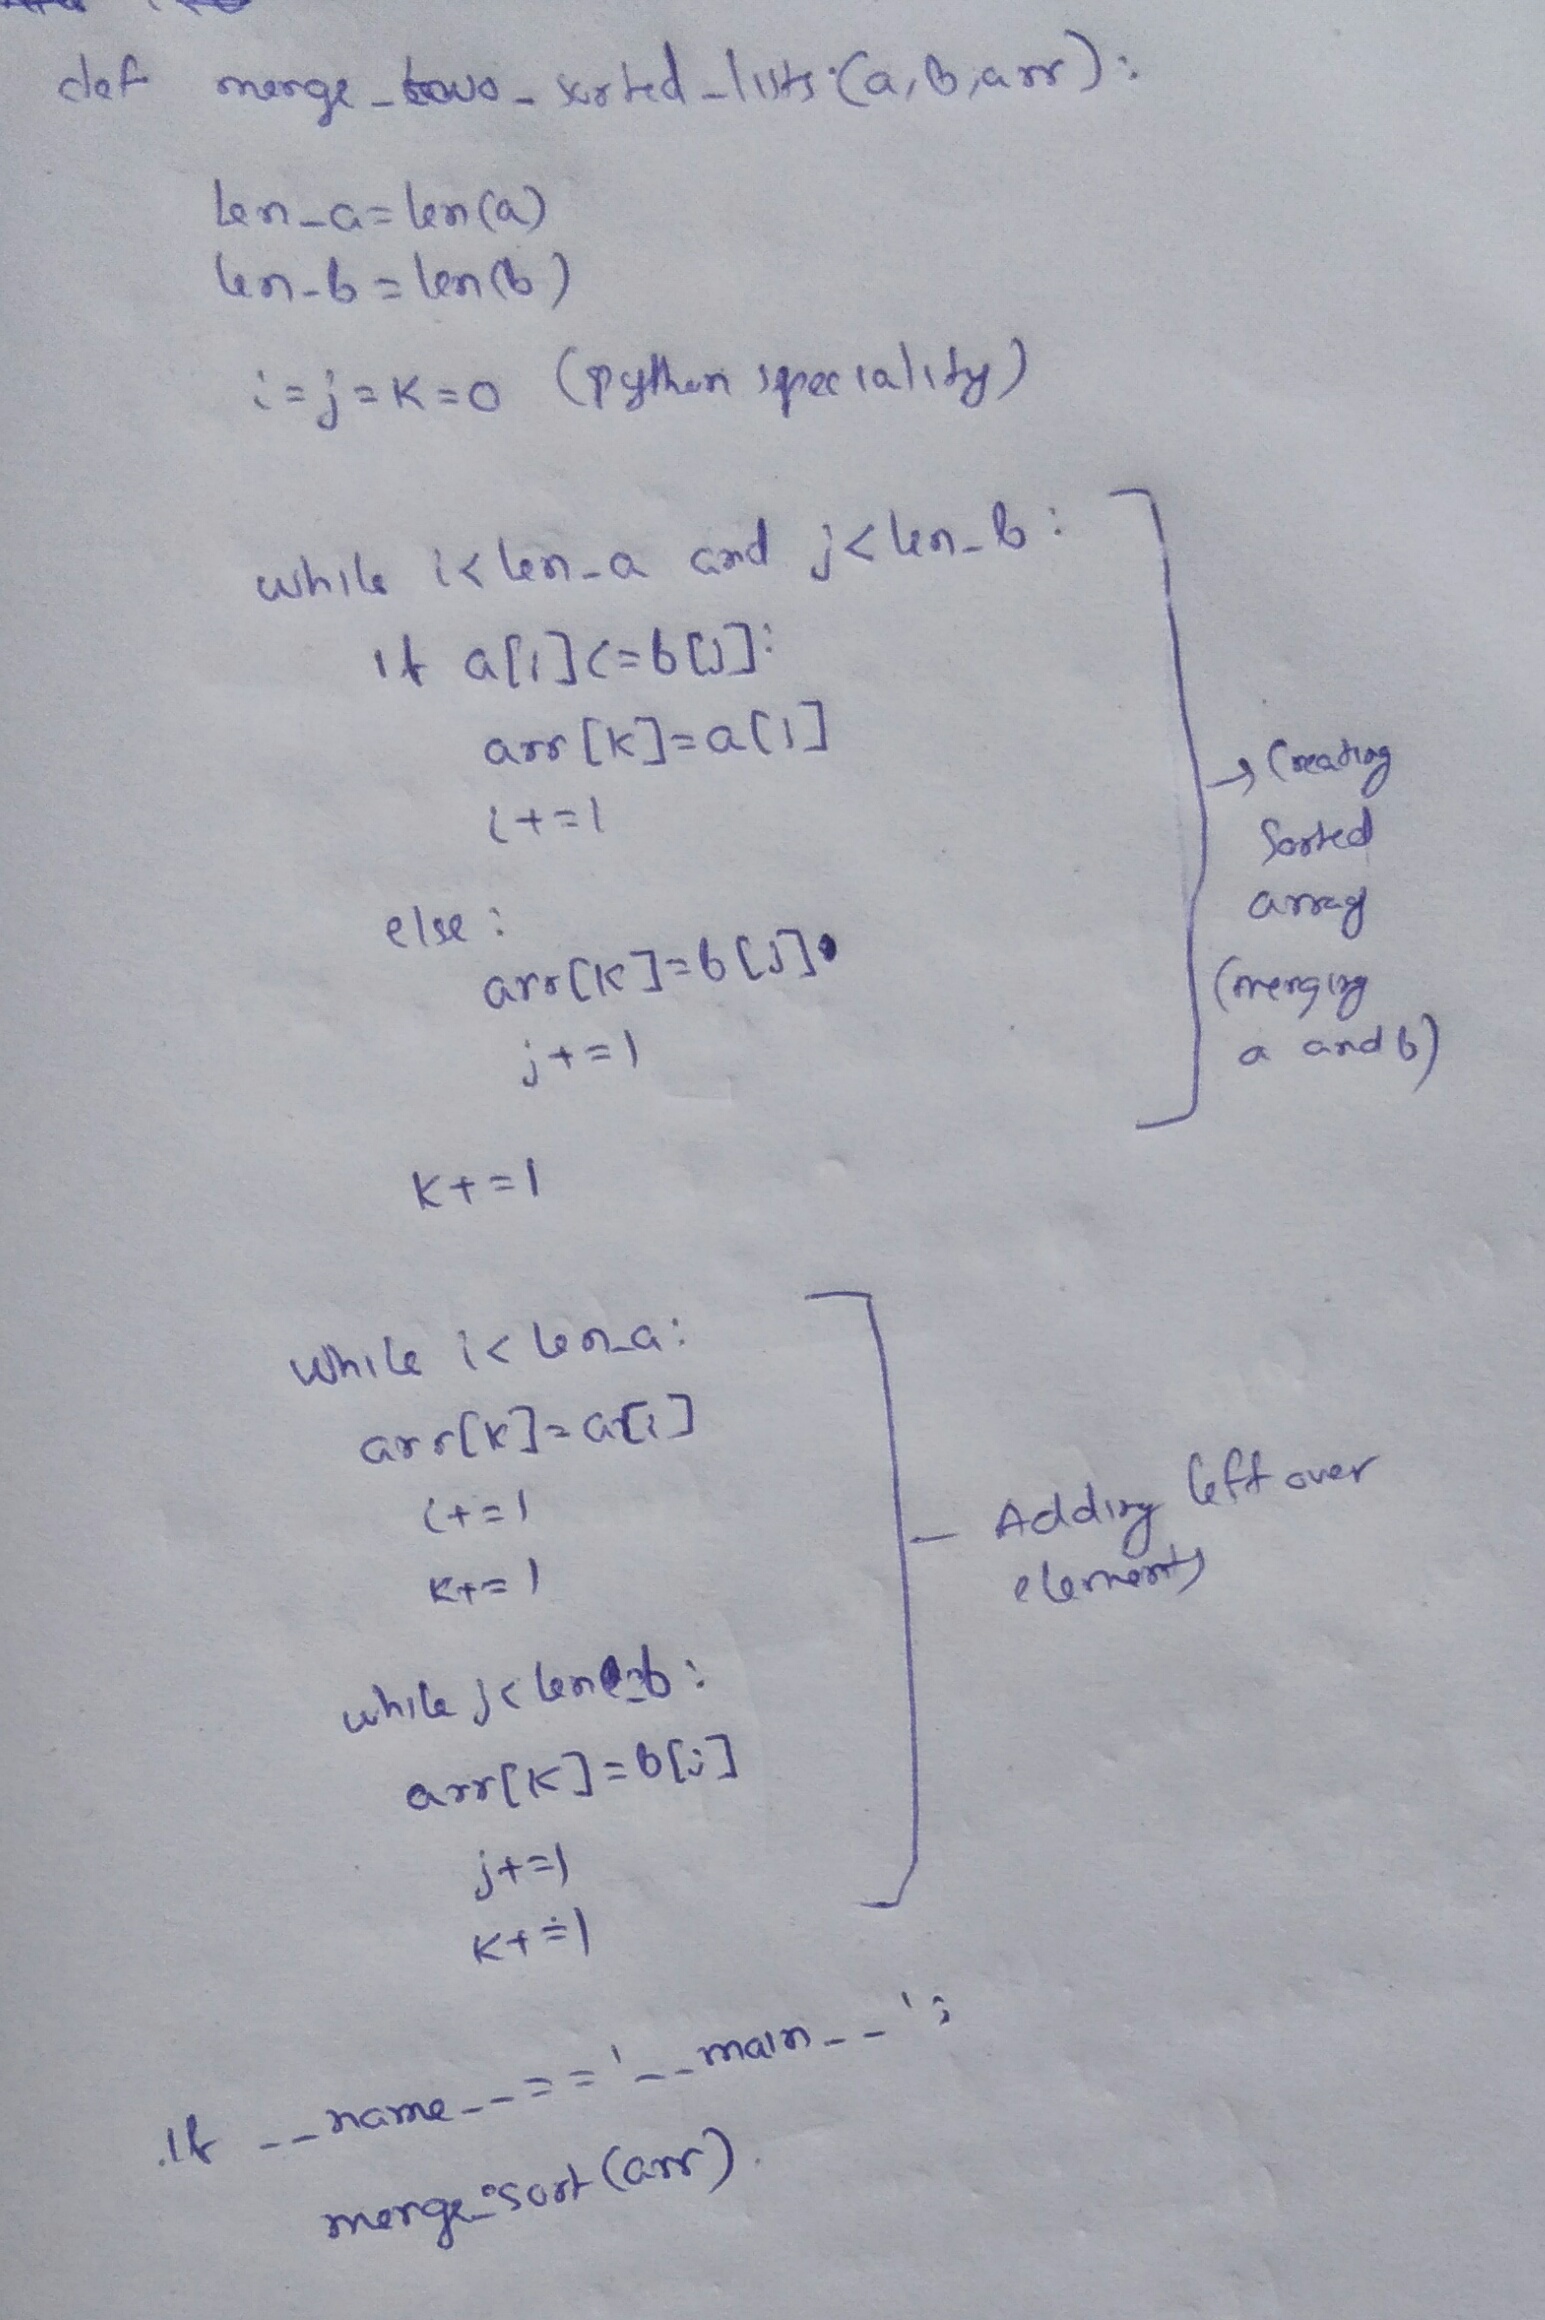 def merge_two_sorted_lists(a,b,arr):
len_a=len(a)
len_b=len(b)
i=j=k=0 (python speciality)
while i<len_a and j<len_b:
if a[i]<=b[j]:
arr[k]=a[i]
i+=1
else:
arr[k]=b[j]
j+=1
k+=1
→ Creating
Sorted
array
(merging
a and b)
while i<len_a:
arr[k]=a[i]
i+=1
k+=1
while j<len_b:
arr[k]=b[j]
j+=1
k+=1
- Adding left over
elements
if __name__=='__main__':
merge_sort(arr)